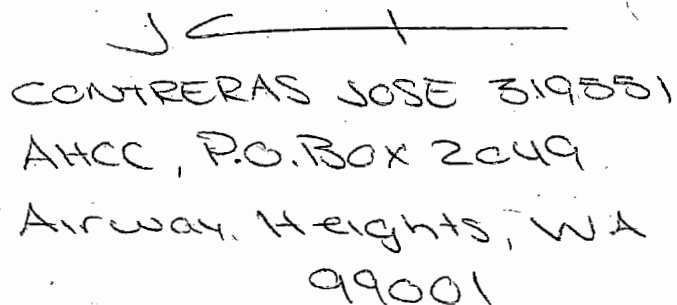 CONTRERAS JOSE 319551
AHCC, P.O. BOX 2049
Airway Heights, WA
99001